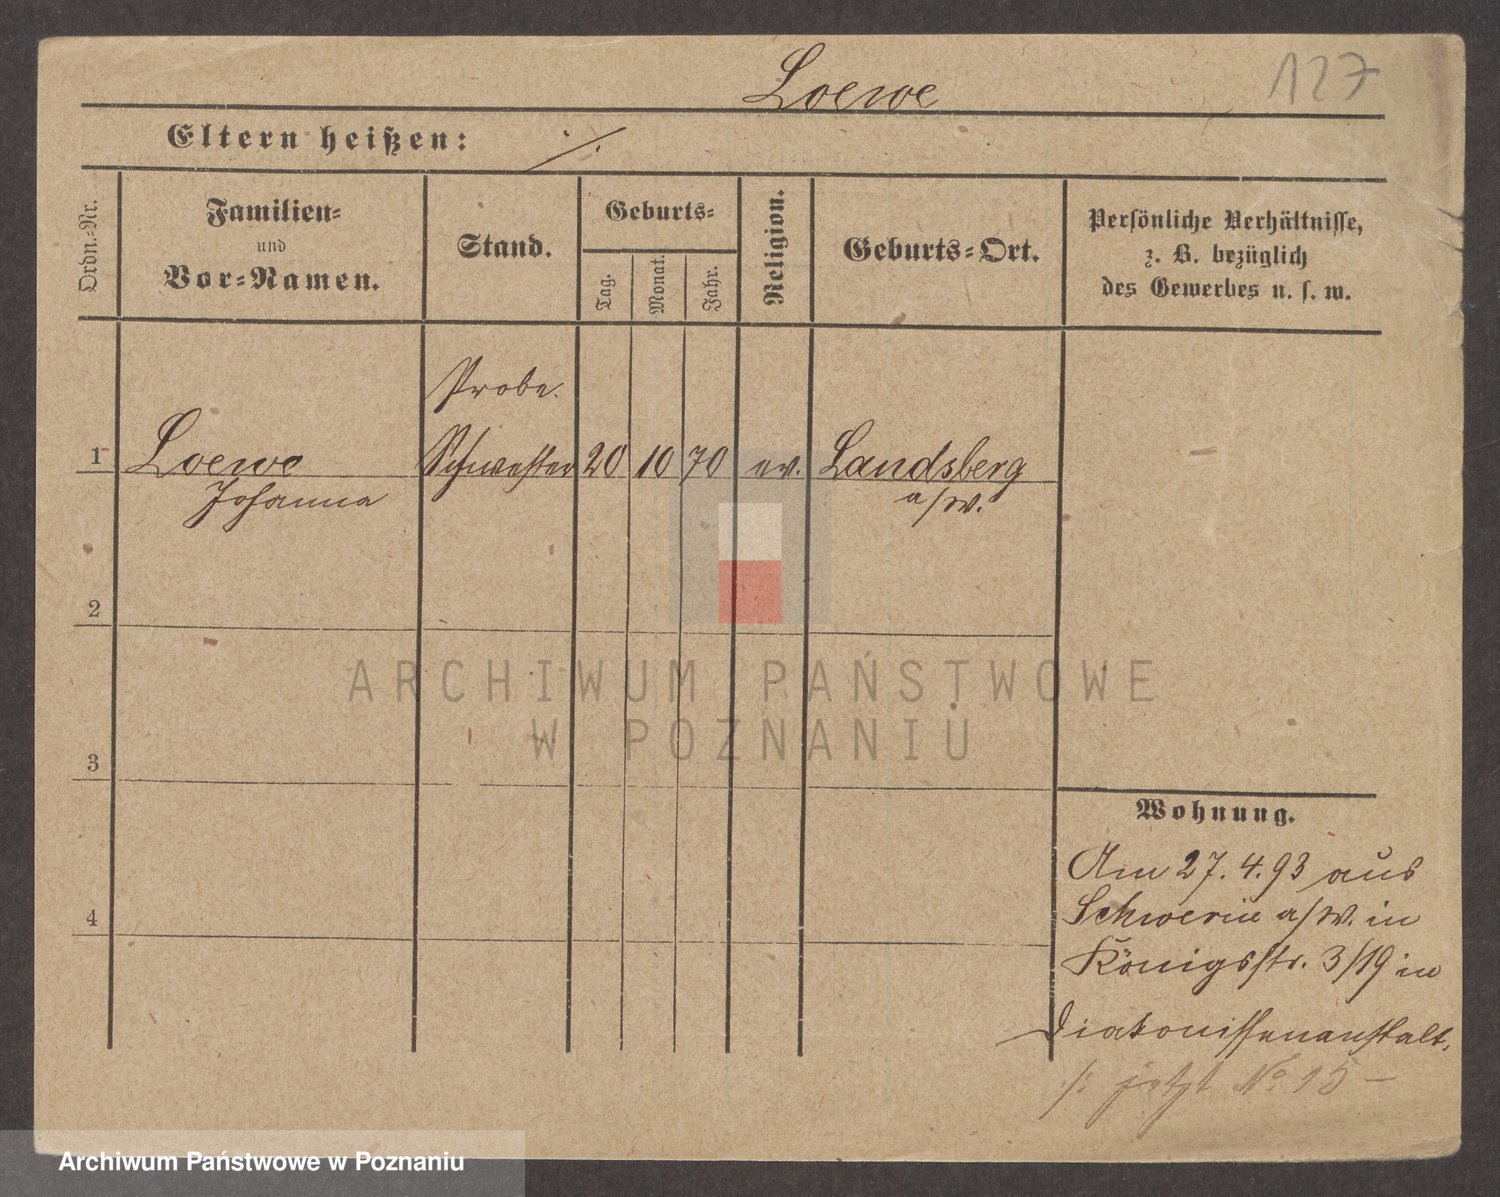 Loewe
127
Eltern heißen: ./.
Ordn.-Nr.
Familien-
und
Vor-Namen.
Stand.
Geburts-
Tag.
Monat.
Jahr.
Religion.
Geburts-Ort.
Persönliche Verhältnisse,
z. B. bezüglich
des Gewerbes u. s. w.
Probe.
1 Loewe Schwester 20 10 70 ev. Landsberg
Johanna a/W.
2
ARCHIWUM PAŃSTWOWE
W POZNANIU
3
Wohnung.
Am 27.4.93 aus
Schwerin a/W. in
4
Königsstr. 3/19 in
Diakonissenanstalt,
/: jetzt No 15 –
Archiwum Państwowe w Poznaniu